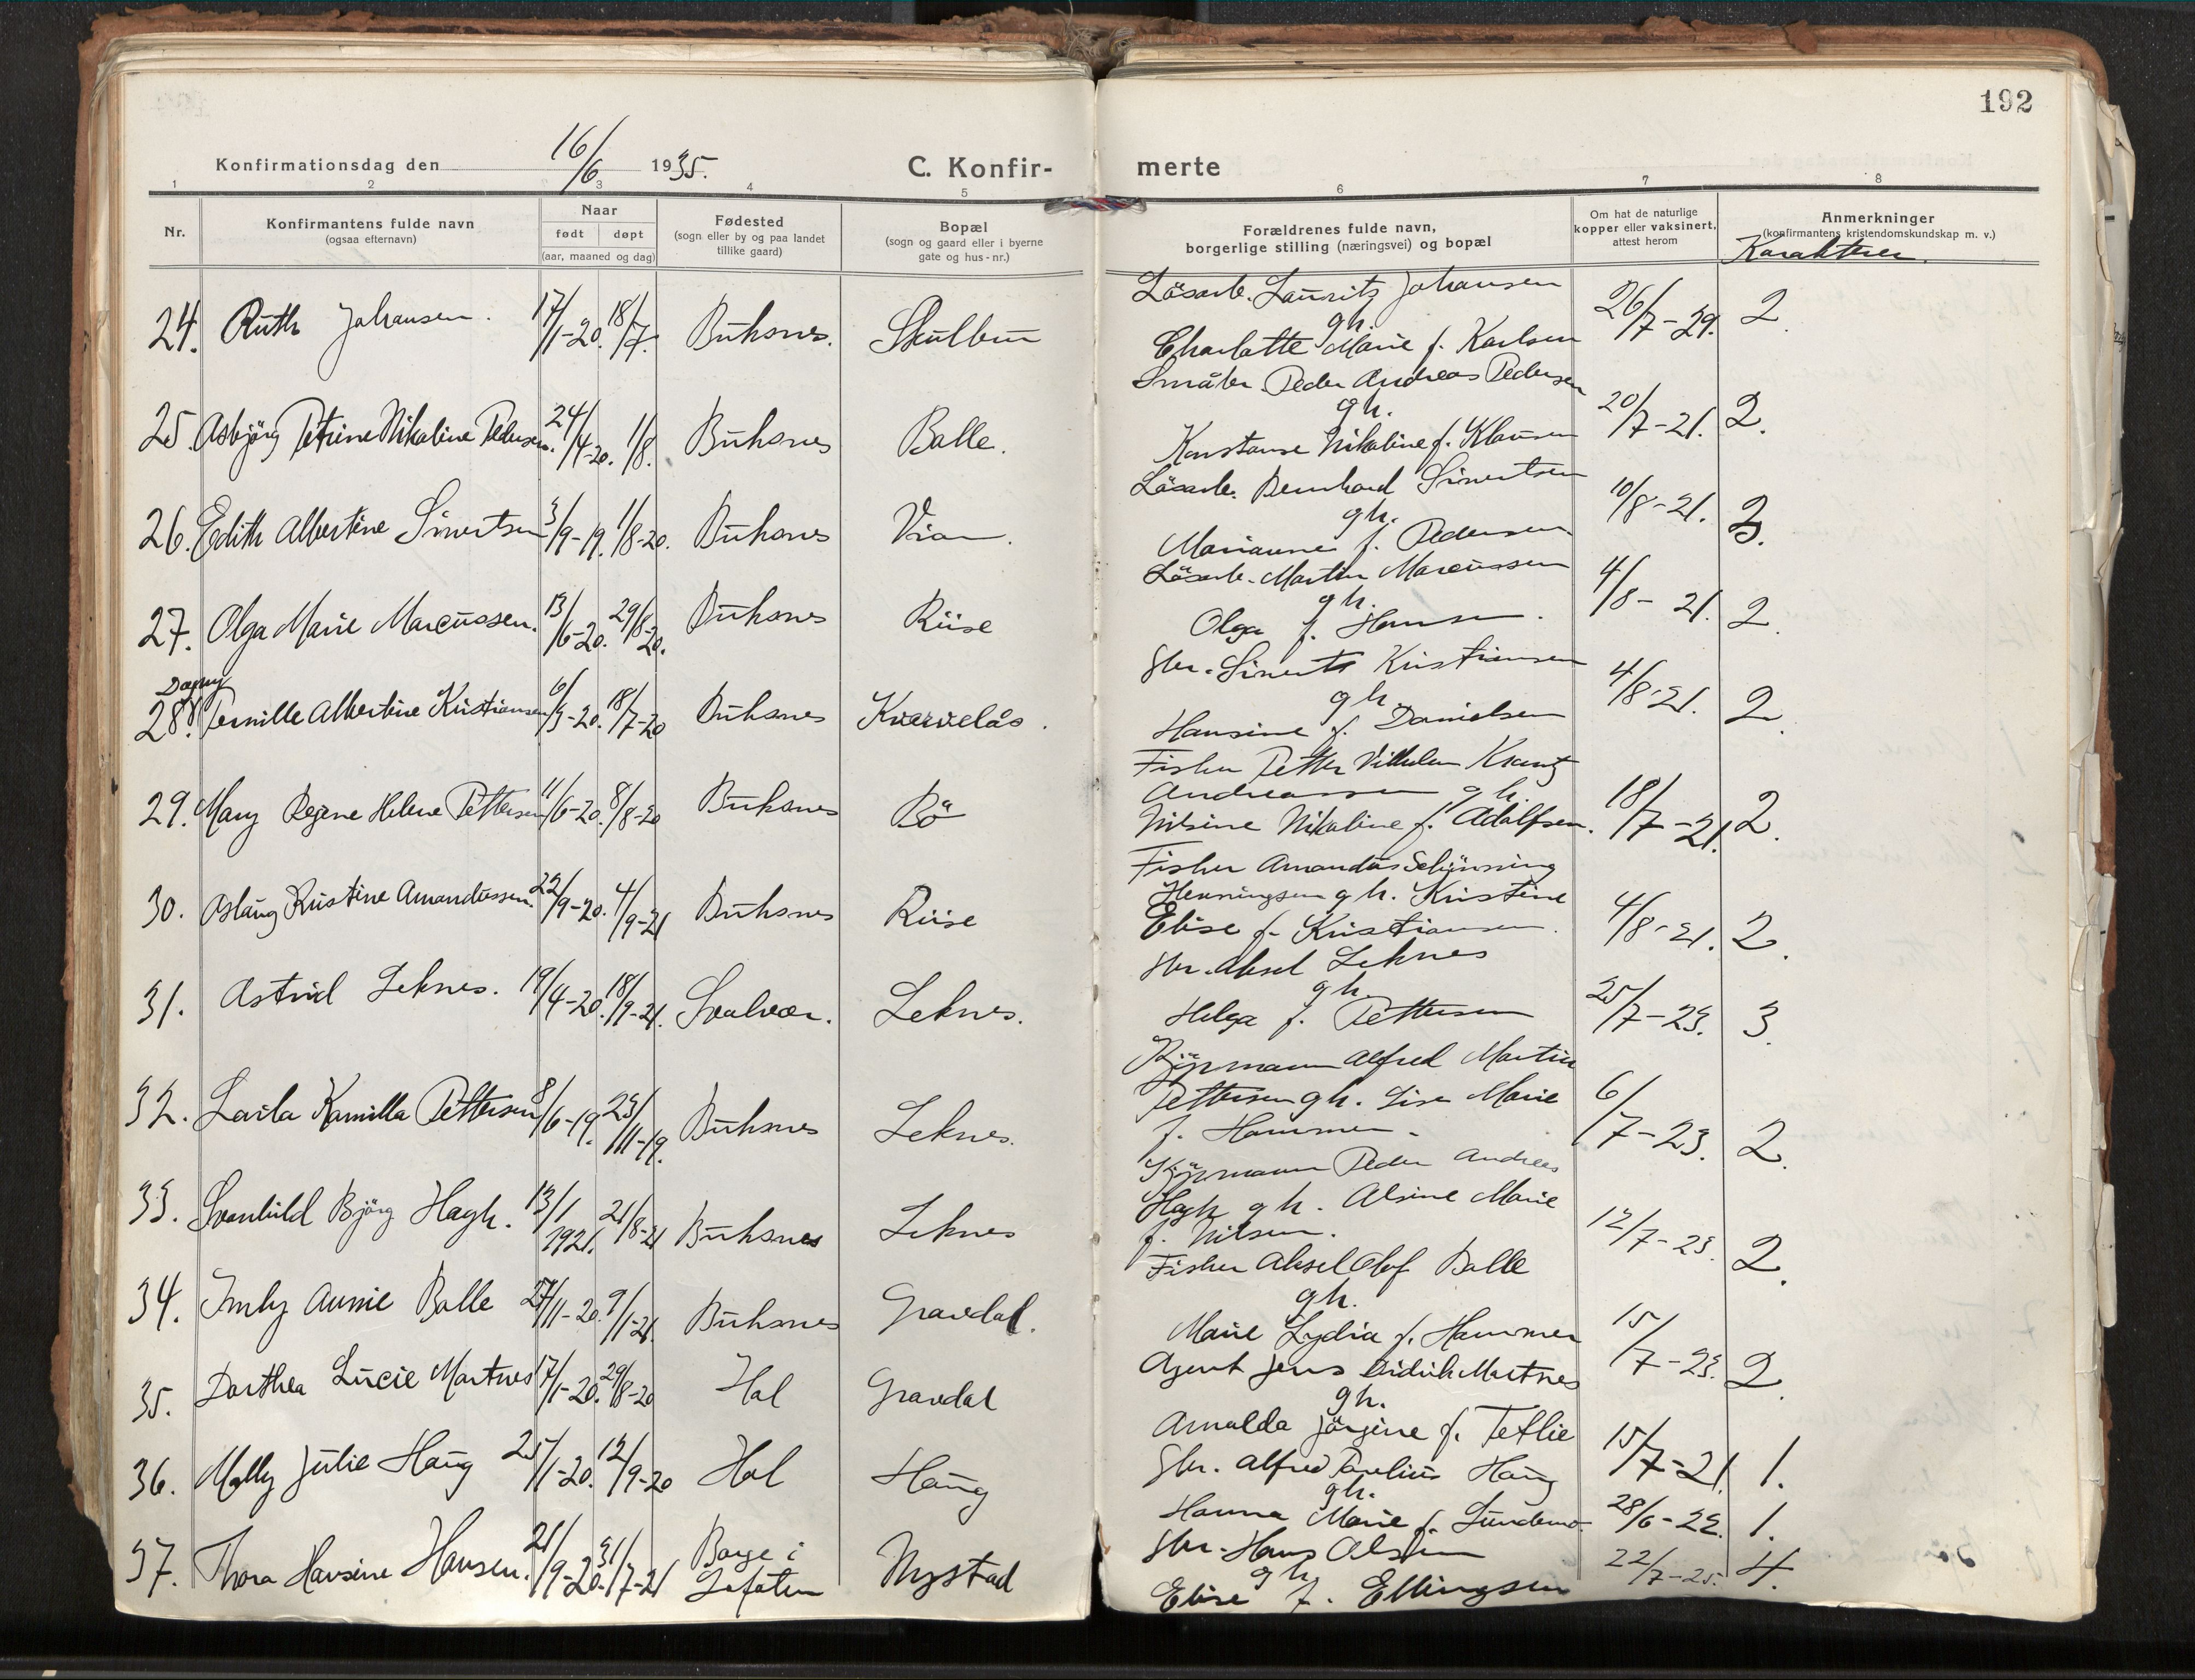 192
Konfirmationsdag den 16/6 1935.
C. Konfir- merte
1 2 3 4 5 6 7 8
Nr.
Konfirmantens fulde navn
(ogsaa efternavn)
Naar
født døpt
(aar, maaned og dag)
Fødested
(sogn eller by og paa landet
tillike gaard)
Bopæl
(sogn og gaard eller i byerne
gate og hus-nr.)
Forældrenes fulde navn,
borgerlige stilling (næringsvei) og bopæl
Om hat de naturlige
kopper eller vaksinert,
attest herom
Anmerkninger
(konfirmantens kristendomskundskap m. v.)
Karakterer.
24. Ruth Johansen. 17/1-20. 18/7. Buksnes. Skulbru
Lösarb. Lauritz Johansen
gh.
Charlotte Marie f. Karlsen
26/7-29. 2.
25 Asbjörg Petrine Nikoline Pedersen. 24/4-20. 1/8. Buksnes Balle.
Småbr. Peder Andreas Pedersen
gh.
Konstanse Nikoline f. Klausen
20/7-21. 2.
26. Edith Albertine Sivertsen 3/9-19. 1/8-20. Buksnes
Lösarb. Bernhard Sivertsen
gh.
Marianne f. Pedersen
10/8-21.
27. Olga Marie Marcussen. 13/6-20. 29/8-20. Buksnes Riise
Lösarb. Martin Marcussen
gh.
Olga f. Hansen.
4/8-21. 2.
Dagny
28. Pernille Albertine Kristiansen 6/3-20. 18/7-20 Buksnes Kvervelås.
Gbr. Siverts Kristiansen
gh.
Hansine f. Danielsen
4/8-21. 2.
29. Mary Regine Helene Pettersen 11/6-20. 8/8-20 Buksnes Bö
Fisker Petter Vilhelm Krantz
Andreassen gh.
Nilsine Nikoline f. Adolfsen.
18/7-21. 2.
30. Aslaug Kristine Amandussen. 22/9-20. 4/9-21 Buksnes Riise
Fisker Amandus Schjønning
Henningsen gh. Kristine
Elise f. Kristiansen.
4/8-21. 2.
31. Astrid Leknes. 19/4-20. 18/9-21. Svolvær. Leknes.
Gbr. Aksel Leknes
gh.
Helga f. Pettersen
25/7-23. 3.
32. Laila Kamilla Pettersen 8/6-19. 23/11-19. Buksnes Leknes.
Kjöpmann Alfred Martin
Pettersen gh. Lise Marie
f. Hammer.
6/7-23. 2.
33. Svanhild Bjørg Hagh. 13/1 1921. 21/8-21 Buksnes Leknes
Kjöpmann Peder Andreas
Hagh gh. Alsine Marie
f. Nilsen.
12/7-23. 2.
34. Imly Aunnie Balle 27/11-20. 9/1-21. Buksnes Gravdal.
Fisker Aksel Olof Balle
gh.
Marie Lydia f. Hammer
15/7-23. 2.
35. Dorthea Lucie Martnes 17/1-20. 29/8-20 Hol Gravdal
Agent Jens Didrik Martnes
gh.
Arnalda Jörgine f. Tetlie
15/7-21. 1.
36. Molly Julie Haug 25/1-20. 12/9-20 Hol Haug
Gbr. Alfred Paulius Haug
gh.
Hanna Marie f. Sundemo
28/6-22. 1.
37. Thora Hansine Hansen. 21/9-20. 31/7-21 Borge i
Lofoten Nystad
Gbr. Hans Olsen
gh.
Elise f. Ellingsen
22/7-25. 4.